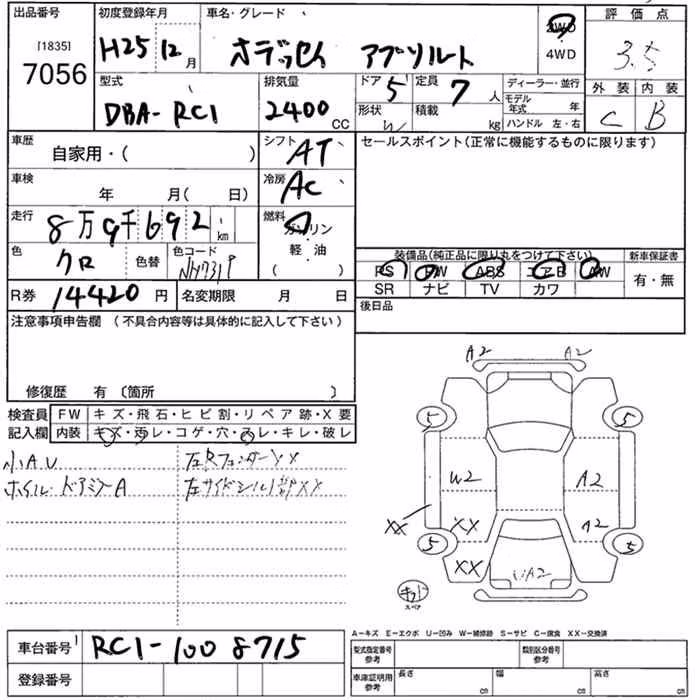 出品番号 初度登録年月 車名・グレード 評価点
[1835] 7056
H25 12月 オデッセイ アブソルート
2WD・4WD
3.5
型式 排気量 ドア 定員 ディーラー・並行 外装 内装
DBA-RC1 2400CC 5 7人 モデル年式 年 C B
形状 W 積載 kg ハンドル 左・右
車歴 自家用・( )
シフト AT
セールスポイント(正常に機能するものに限ります)
車検 年 月( 日)
冷房 AC
走行 8万9千692km
燃料 ガソリン 軽・油 ( )
色 クロ 色替 色コード NH731P
装備品(純正品に限り丸をつけて下さい) 新車保証書
PS PW ABS エアB AW 有・無
SR ナビ TV カワ
R券 14420円 名変期限 月 日
後日品
注意事項申告欄(不具合内容等は具体的に記入して下さい)
修復歴 有(箇所 )
検査員 FW キズ・飛石・ヒビ割・リペア跡・X要
記入欄 内装 キズ・汚レ・コゲ・穴・スレ・キレ・破レ
小A.U 左Rフェンダー XX
ホイル・ドアミラーA 左サイドシル XX
A2 A2
5 5
W2 A2
XX XX A2
5 5
XX
A2
スペア
A-キズ E-エクボ U-凹み W-補修跡 S-サビ C-腐食 XX-交換済
車台番号 RC1-1008715
型式指定番号 参考 類別区分番号 参考
登録番号
車庫証明用 参考 長さ cm 幅 cm 高さ cm